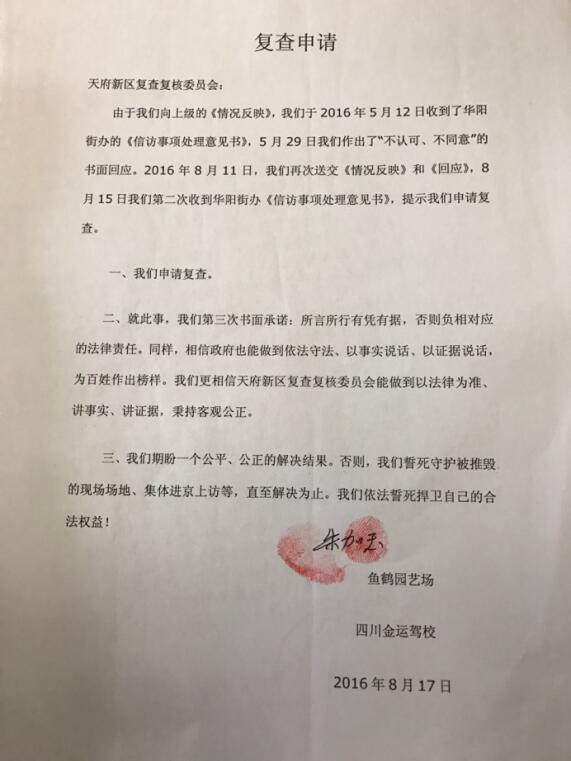 复查申请
天府新区复查复核委员会：
由于我们向上级的《情况反映》，我们于 2016 年 5 月 12 日收到了华阳
街办的《信访事项处理意见书》，5 月 29 日我们作出了“不认可、不同意”的
书面回应。2016 年 8 月 11 日，我们再次送交《情况反映》和《回应》，8
月 15 日我们第二次收到华阳街办《信访事项处理意见书》，提示我们申请复
查。
一、我们申请复查。
二、就此事，我们第三次书面承诺：所言所行有凭有据，否则负相对应
的法律责任。同样，相信政府也能做到依法守法、以事实说话、以证据说话，
为百姓作出榜样。我们更相信天府新区复查复核委员会能做到以法律为准、
讲事实、讲证据，秉持客观公正。
三、我们期盼一个公平、公正的解决结果。否则，我们誓死守护被推毁
的现场场地、集体进京上访等，直至解决为止。我们依法誓死捍卫自己的合
法权益！
鱼鹤园艺场
四川金运驾校
2016 年 8 月 17 日